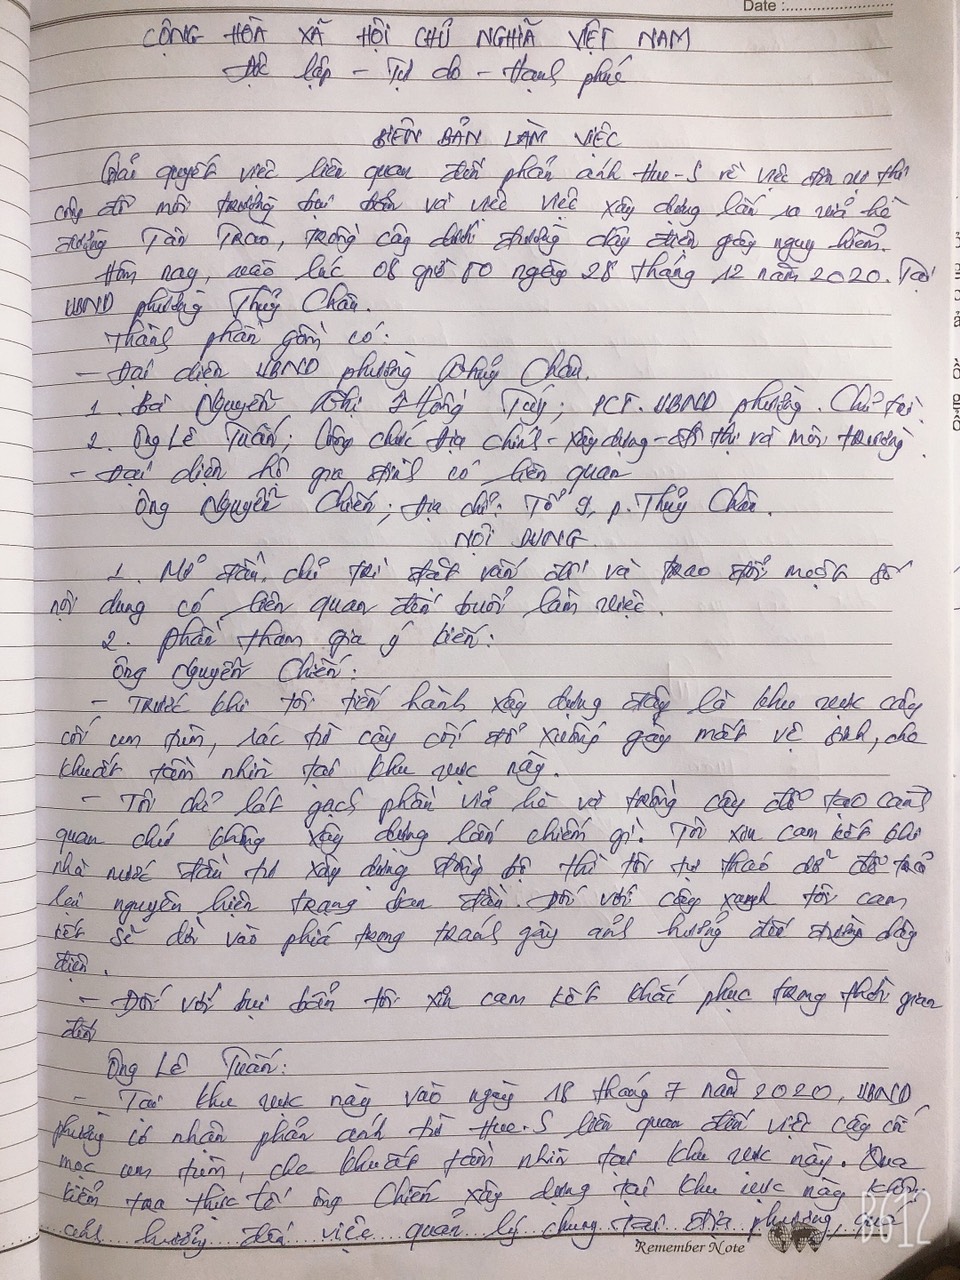 Date :
CỘNG HÒA XÃ HỘI CHỦ NGHĨA VIỆT NAM
Độc lập - Tự do - Hạnh phúc
BIÊN BẢN LÀM VIỆC
Giải quyết việc liên quan đến phản ánh Hue-S về việc
môi trường bụi bẩn và việc việc xây dựng lấn ra vỉa hè
đường Tân Trào, trồng cây dưới đường dây điện gây nguy hiểm.
Hôm nay, vào lúc 08 giờ 00 ngày 28 tháng 12 năm 2020. Tại
UBND phường Thủy Châu.
Thành phần gồm có:
- Đại diện UBND phường Thủy Châu.
1. Bà Nguyễn Thị Hồng Túy; PCT. UBND phường. Chủ trì
2. Ông Lê Tuấn; Công chức Địa chính - Xây dựng - Đô thị và Môi trường.
- Đại diện hộ gia đình có liên quan
Ông Nguyễn Chiến; Địa chỉ: Tổ 9, p. Thủy Châu.
NỘI DUNG
1. Mở đầu, chủ trì đặt vấn đề và trao đổi một số
nội dung có liên quan đến buổi làm việc.
2. Phần tham gia ý kiến:
Ông Nguyễn Chiến:
- Trước khi tôi tiến hành xây dựng đây là khu vực cây
cối um tùm, rác từ cây cối đổ xuống gây mất vệ sinh, che
khuất tầm nhìn tại khu vực này.
- Tôi chỉ lát gạch phần vỉa hè và trồng cây để tạo cảnh
quan chứ không xây dựng lấn chiếm gì. Tôi xin cam kết khi
nhà nước đầu tư xây dựng đồng bộ thì tôi tự tháo dỡ để trả
lại nguyên hiện trạng ban đầu. Đối với cây xanh tôi cam
kết sẽ dời vào phía trong tránh gây ảnh hưởng đến đường dây
điện.
- Đối với bụi bẩn tôi xin cam kết khắc phục trong thời gian
đến
Ông Lê Tuấn:
- Tại khu vực này vào ngày 18 tháng 7 năm 2020, UBND
phường có nhận phản ánh từ Hue-S liên quan đến việc cây cối
mọc um tùm, che khuất tầm nhìn tại khu vực này. Qua
kiểm tra thực tế ông Chiến xây dựng tại khu vực này không
ảnh hưởng đến việc quản lý chung tại địa phương, quá
Remember Note
B612